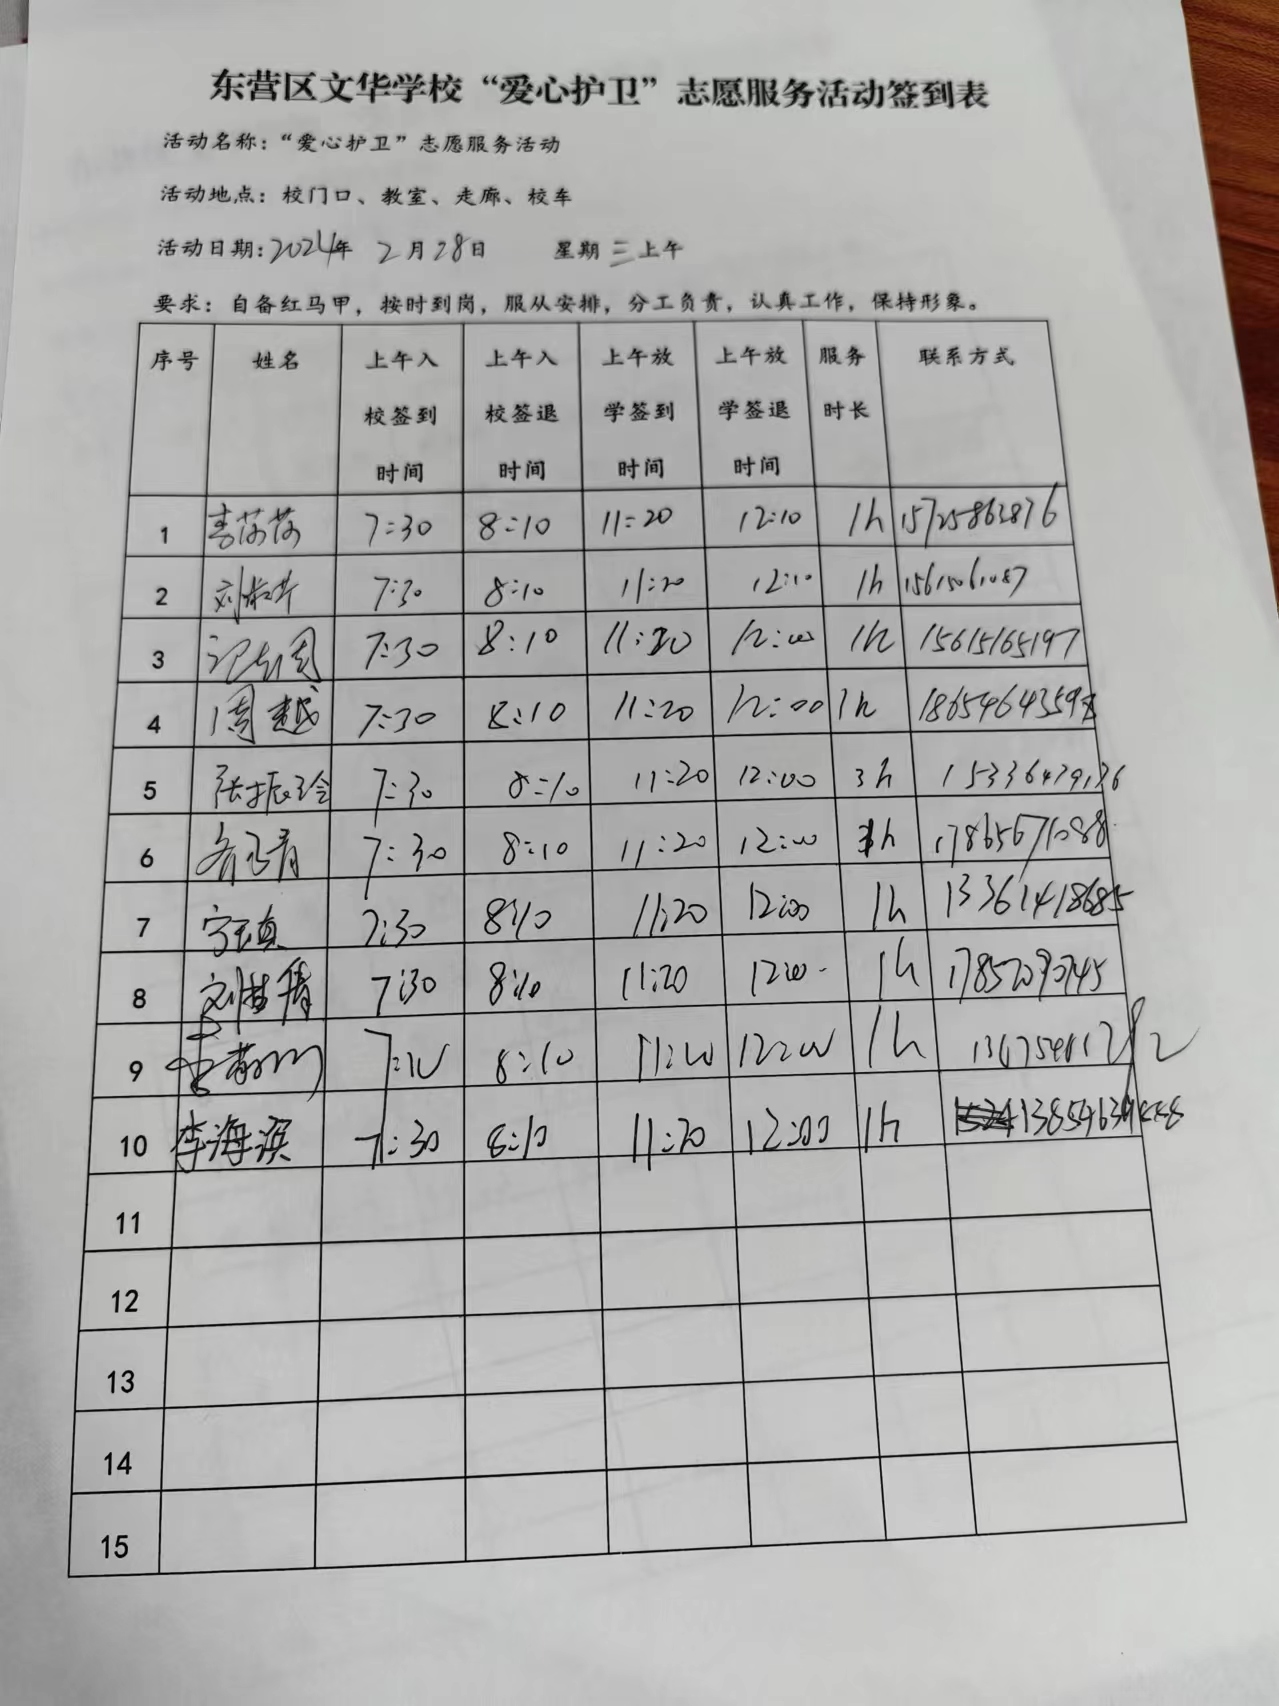 东营区文华学校“爱心护卫”志愿服务活动签到表
活动名称：“爱心护卫”志愿服务活动
活动地点：校门口、教室、走廊、校车
活动日期：2024年 2月28日 星期三上午
要求：自备红马甲，按时到岗，服从安排，分工负责，认真工作，保持形象。
序号 姓名 上午入校签到时间 上午入校签退时间 上午放学签到时间 上午放学签退时间 服务时长 联系方式
1 7:30 8:10 11:20 12:10 1h 15725863876
2 7:30 8:10 11:20 12:10 1h
3 7:30 8:10 11:20 12:00 1h 15615165197
4 周越 7:30 8:10 11:20 12:00 1h 18654643598
5 张振玲 7:30 8:10 11:20 12:00 3h
6 7:30 8:10 11:20 12:00 1h 17865671088
7 7:30 8:10 11:20 12:00 1h 13361418685
8 7:30 8:10 11:20 12:00 1h
9 8:10 11:20 12:00 1h
10 李海滨 7:30 8:10 11:20 12:00 1h
11
12
13
14
15